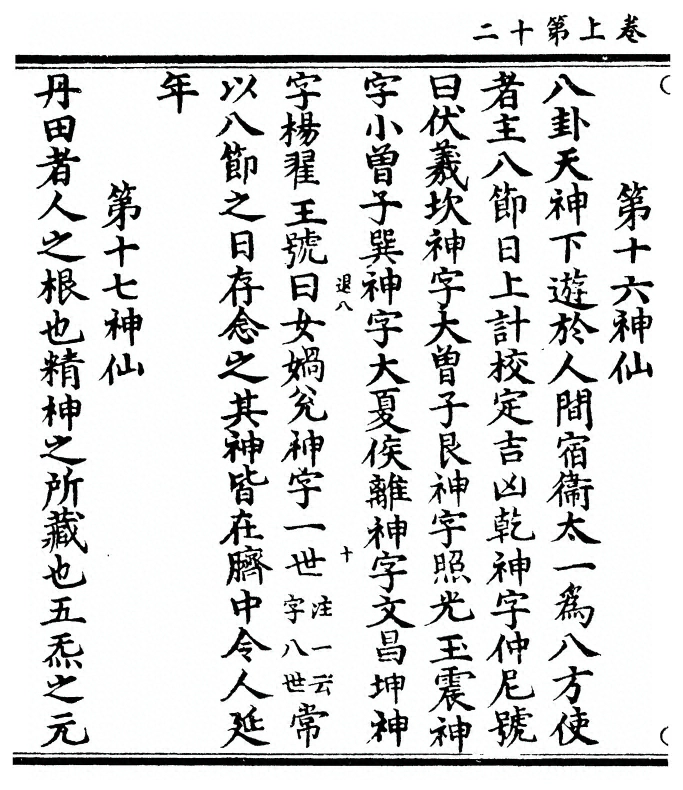 卷上第十二
第十六神仙
八卦天神下遊於人間宿衞太一爲八方使
者主八節日上計校定吉凶乾神字仲尼號
曰伏羲坎神字大曾子艮神字照光玉震神
字小曾子巽神字大夏侯離神字文昌坤神
退八 十
字楊翟王號曰女媧兊神字一世注一云字八世常
以八節之日存念之其神皆在臍中令人延
年
第十七神仙
丹田者人之根也精神之所藏也五炁之元